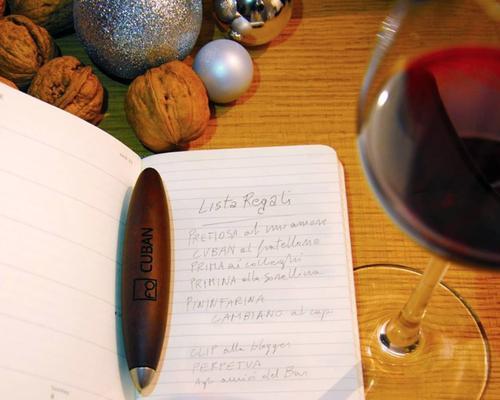 CUBAN
Lista Regali
PREZIOSA al mio amore
CUBAN al fratellone
PRIMA ai colleghi
PRIMINA alla sorellina
PININFARINA
CAMBIANO al capo
CLIP alla blogger
PERPETUA
agli amici del Bar